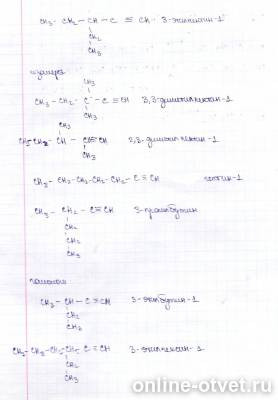 CH3 - CH2 - CH - C ≡ CH 3-этилпентин-1
CH2
CH3
изомеры
CH3
CH3 - CH2 - C - C ≡ CH 3,3-диметилпентин-1
CH3
CH3
CH3
CH3 - CH2 - CH2 - CH2 - CH2 - C ≡ CH гептин-1
CH3 - CH2 - C ≡ CH
CH2
CH2
CH3
гомологи
CH3 - CH - C ≡ CH 3-этилбутин-1
CH2
CH3
CH3 - CH2 - CH2 - CH - C ≡ CH 3-этилгексин-1
CH2
CH3
online-otvet.ru